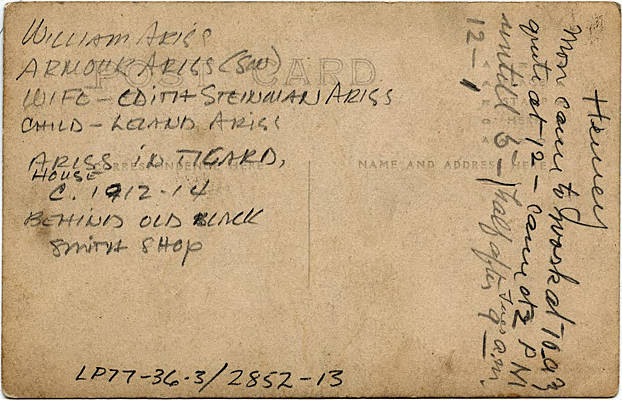 POST CARD
WILLIAM ARISS
ARMOUR ARISS (SON)
WIFE - EDITH STEINMAN ARISS
CHILD - LELAND ARISS
CORRESPONDENCE HERE
NAME AND ADDRESS HERE
ARISS HOUSE IN TIGARD,
C. 1912-14
BEHIND OLD BLACK
SMITH SHOP
LP77-36-3/2852-13
Henery
More came to work at 10
quite at 12 - came at 2 PM
untill 6 - half after
12 - 1